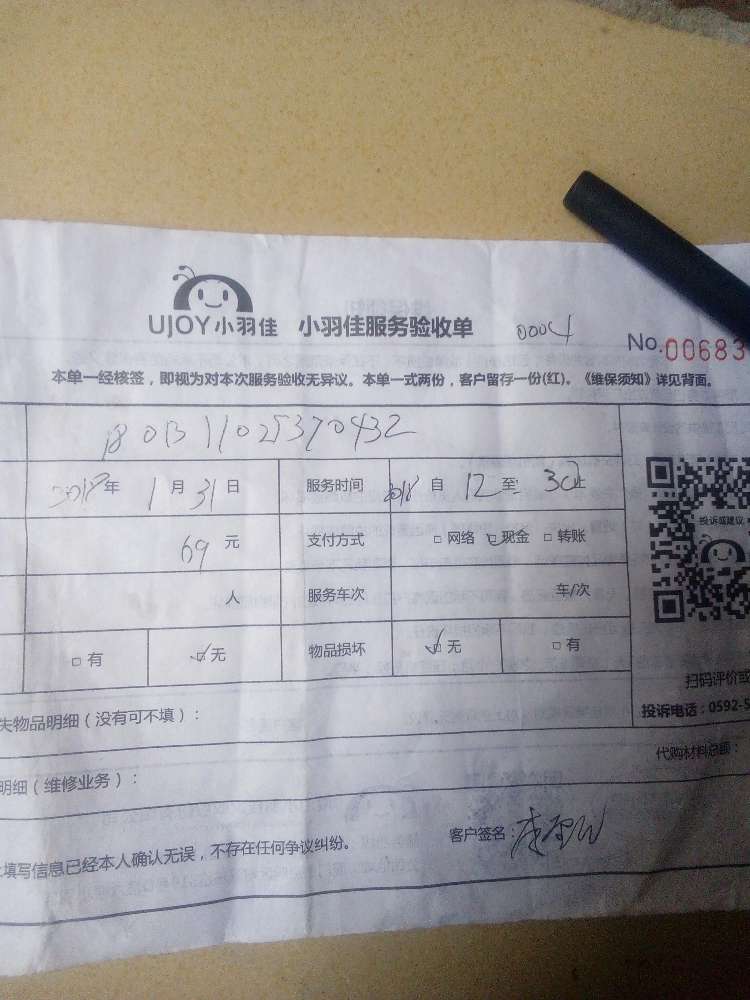 UJOY小羽佳 小羽佳服务验收单 0004 No.00683
本单一经核签，即视为对本次服务验收无异议。本单一式两份，客户留存一份(红)。《维保须知》详见背面。
2018年 1月31日 服务时间 2018 自 12 至 止
投诉或建议
69元 支付方式 □网络 □现金 □转账
人 服务车次 车/次
□有 □无 物品损坏 □无 □有
扫码评价或
失物品明细（没有可不填）： 投诉电话：0592-5
明细（维修业务）： 代购材料总额：
填写信息已经本人确认无误，不存在任何争议纠纷。 客户签名：